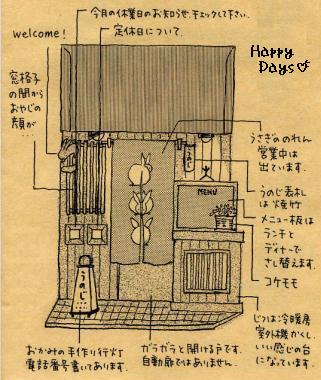 今月の休業日のお知らせ.チェックして下さい.
welcome!
定休日について.
HAPPY
DAYS
窓格子
の間から
おやじの
顔が…
うさぎののれん
営業中は
出ています.
うのじ表札
は焼竹
MENU
メニュー板は
ランチと
ディナーで
さし替えます.
コケモモ
うのじ…
じつは冷暖房
室外機かくし.
いい感じの台
になっています.
おかみの手作り行灯
電話番号書いてあります.
ガラガラと開ける戸です.
自動扉ではありません.